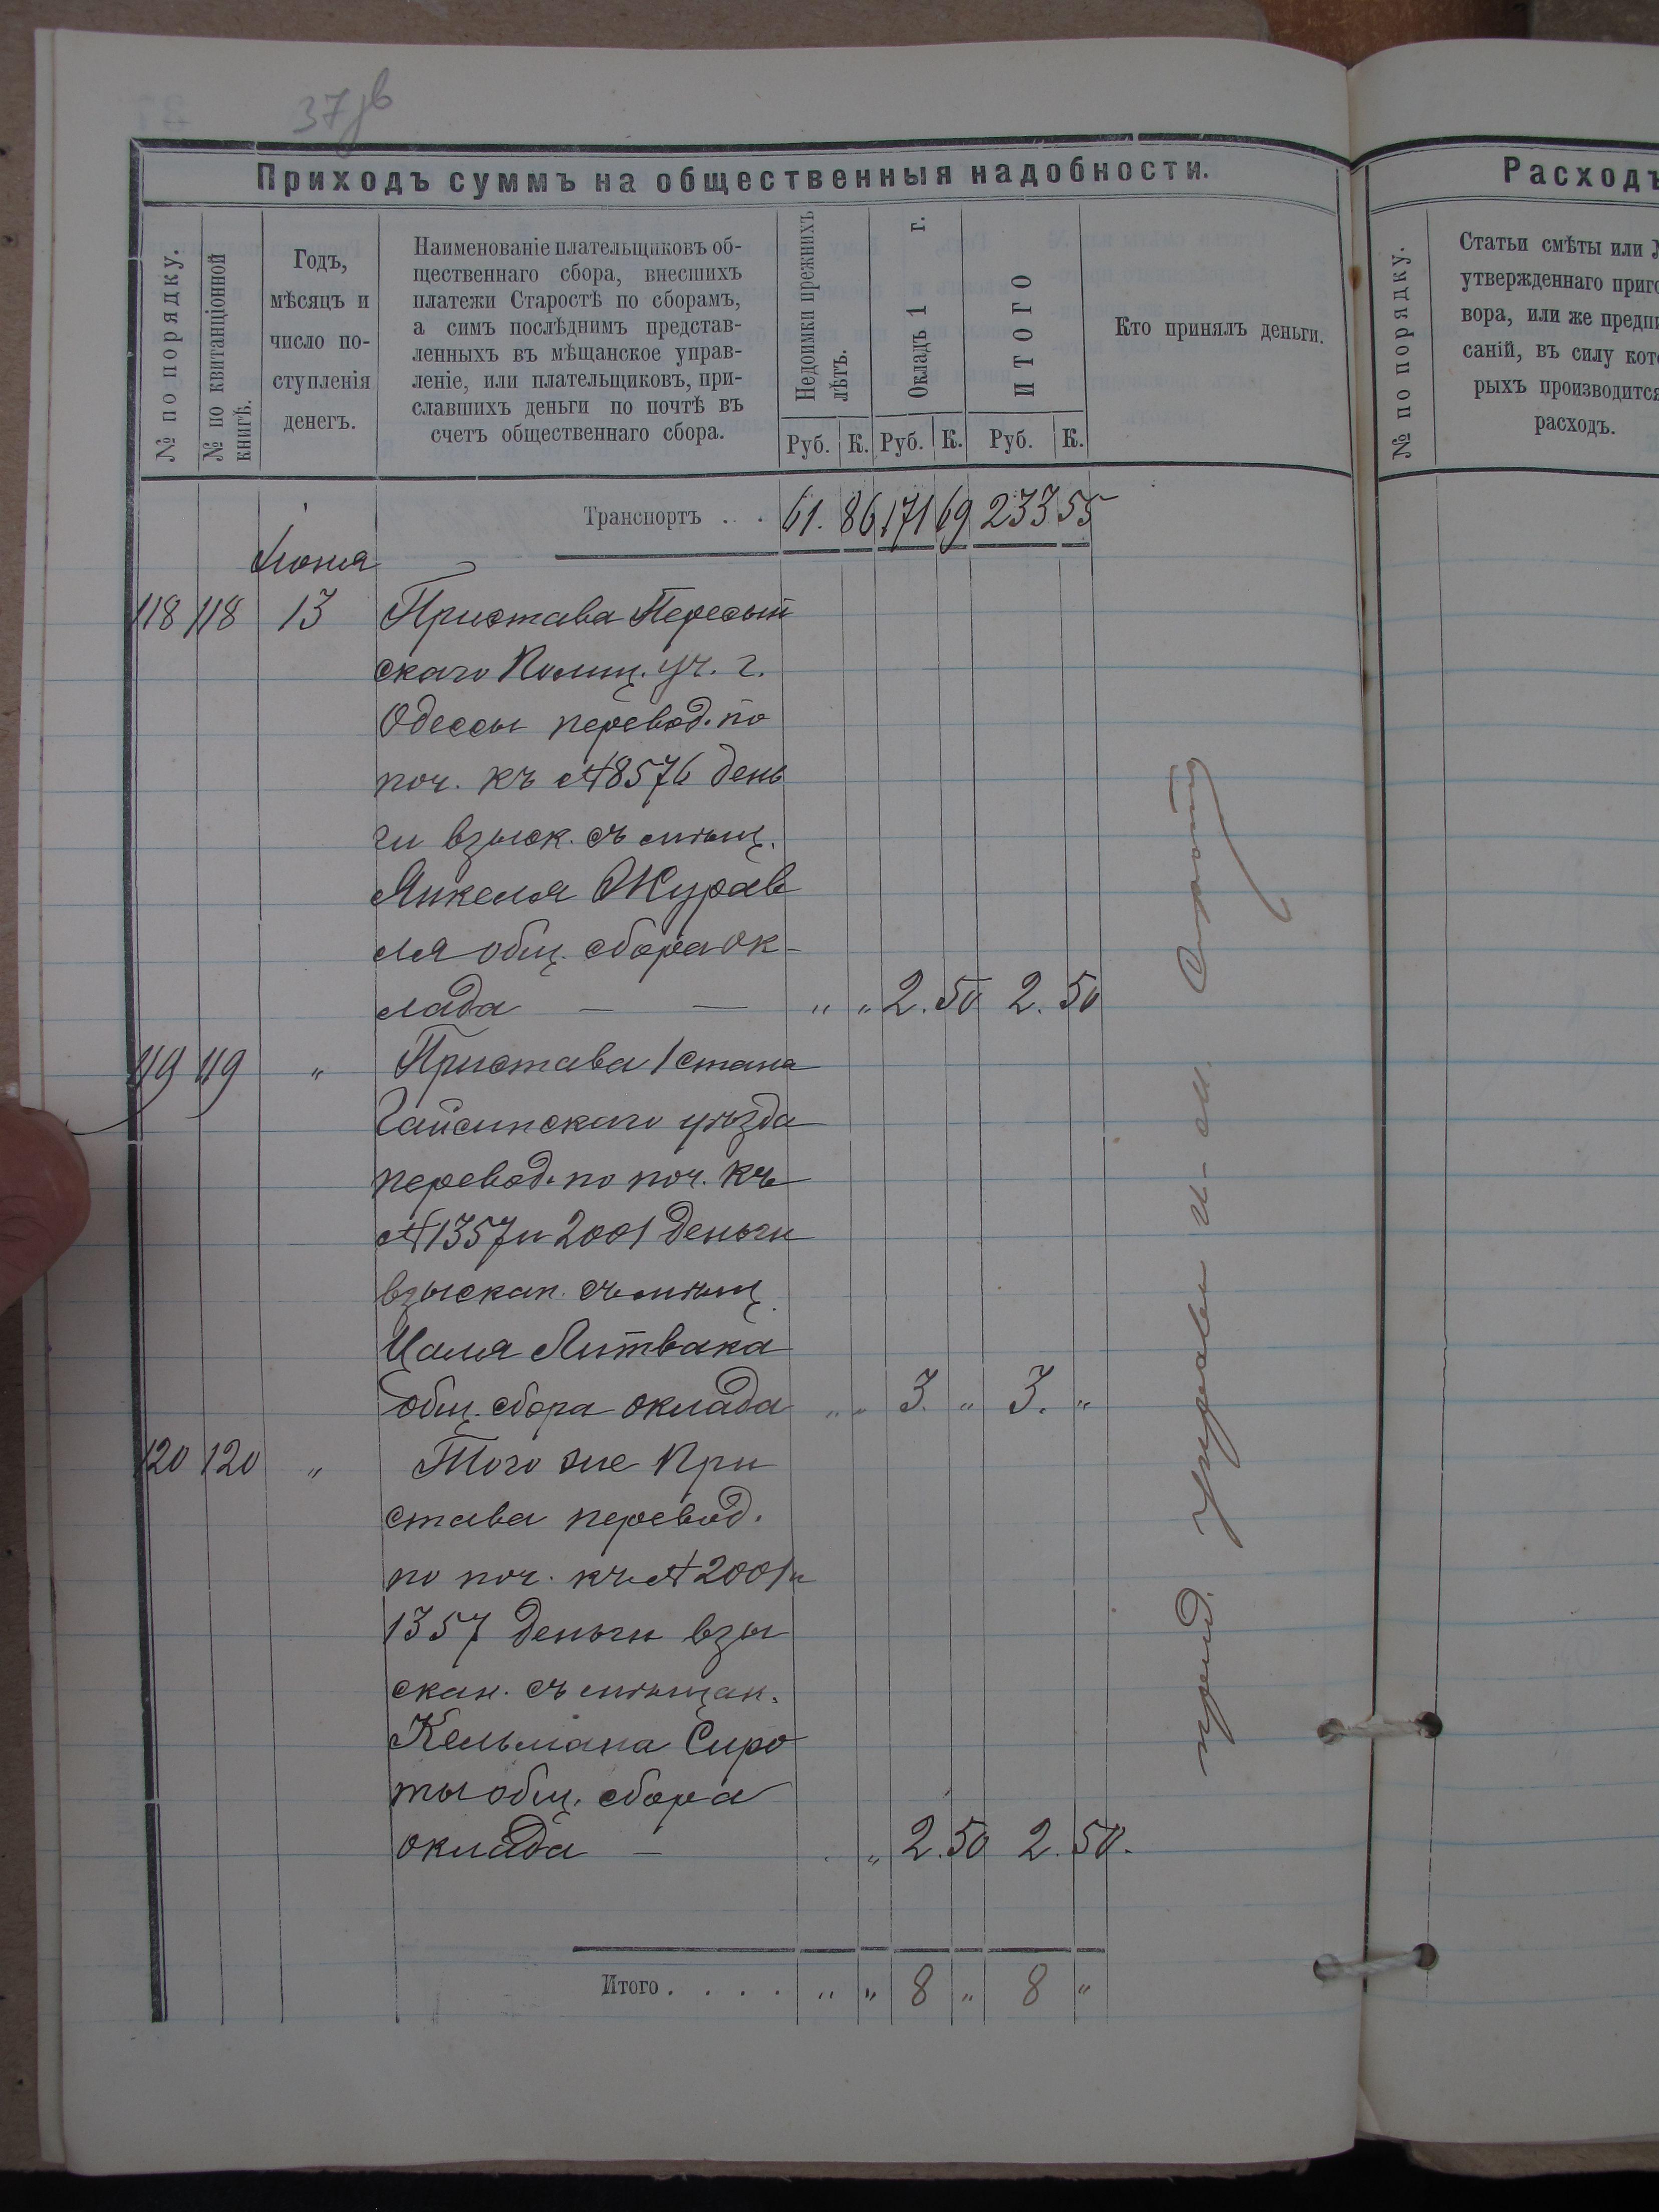 37 зв
Приходъ суммъ на общественныя надобности.
№ по порядку.
№ по квитанціонной
книгѣ.
Годъ,
мѣсяцъ и
число по-
ступленія
денегъ.
Наименованіе плательщиковъ об-
щественнаго сбора, внесшихъ
платежи Старостѣ по сборамъ,
а симъ послѣднимъ представ-
ленныхъ въ мѣщанское управ-
леніе, или плательщиковъ, при-
славшихъ деньги по почтѣ въ
счетъ общественнаго сбора.
Недоимки прежнихъ
лѣтъ.
Окладъ 1 г.
ИТОГО
Руб. К. Руб. К. Руб. К.
Кто принялъ деньги.
Транспортъ . . . 61. 86 171 69 233 55
Июня
118 118 13 Пристава Пересып
скаго Полиц. уч. г.
Одессы перевод. по
поч. къ № 8576 день
ги взыск. съ мѣщ.
Янкеля Журав
ля общ. сбора ок-
лада — — " " 2. 50 2. 50
119 119 " Пристава 1 стана
Гайсинскаго уѣзда
перевод. по поч. къ
№ 1357 и 2001 деньги
взыскан. съ мѣщ.
Цаля Литвака
общ. сбора оклада " " 3. " 3. "
120 120 " Того же При
става перевод.
по поч. къ № 2001 и
1357 деньги взы
скан. съ мѣщан.
Кельмана Сиро
ты общ. сбора
оклада — " 2. 50 2. 50.
Итого . . . . " " 8 " 8 "
Управы
Расходъ
№ по порядку.
Статьи смѣты или №
утвержденнаго приго
вора, или же предпи
саній, въ силу кото
рыхъ производится
расходъ.